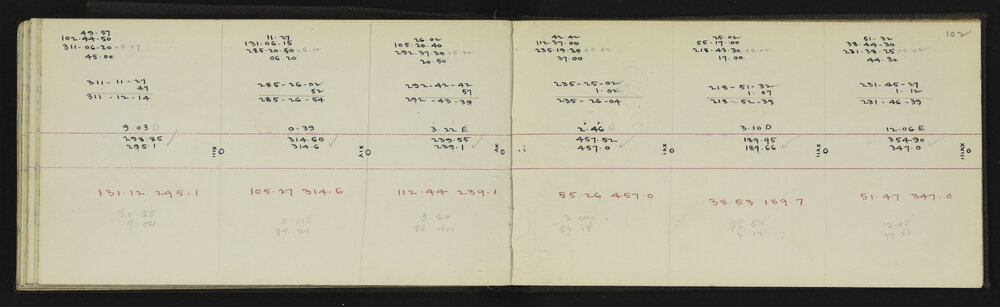 102
49.57
102.44.50
311.06.20 +5.07
45.00
311-11-27
47
311-12-14
9.03 D
298.85
295.1
XIII
131.12 295.1
80.55
9.02
11.27
131.06.15
285.20.50 +5.12
06.20
285-26-02
52
285-26-54
0.39
314.60
314.6
XIV
105.27 314.6
89.21
26.02
105.20.40
292.37.20 +5.22
20.50
292-42-42
57
292-43-39
3.22 E
239.55
239.1
XV
112.44 239.1
3.20
86.44
42.42
112.37.00
235.19.20 +5.42
37.00
235-25-02
1.02
235-26-04
2.46
457.52
457.0
XVI
55.26 457.0
87.15
25.02
55.17.00
218.43.30 +8.02
17.00
218-51-32
1.07
218-52-39
3.10 D
189.95
189.66
XVII
38.53 189.7
86.50
3.12
51.32
38.44.30
231.38.25 +7.02
44.30
231.45-27
1.12
231-46-39
12.06 E
354.90
347.0
XVIII
51.47 347.0
12.05
77.50